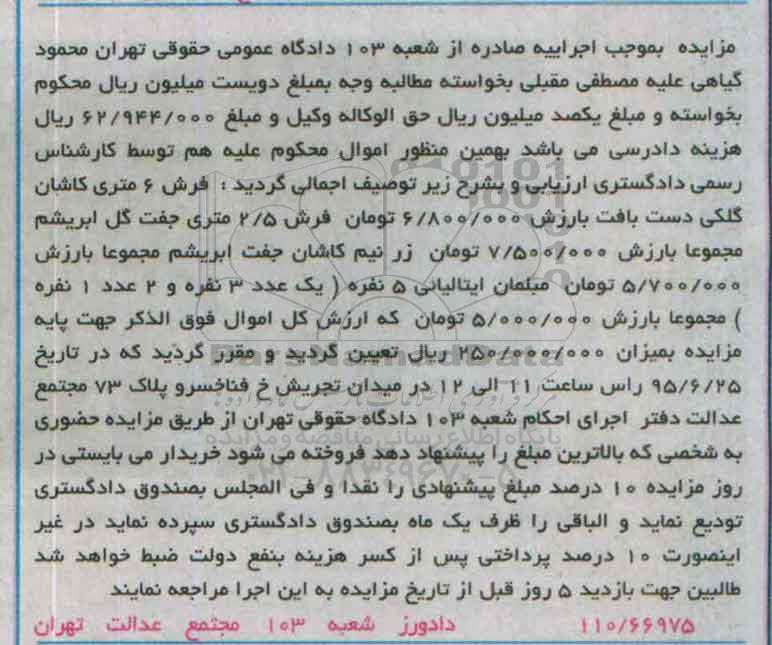 مزایده بموجب اجراییه صادره از شعبه ۱۰۳ دادگاه عمومی حقوقی تهران محمود
گیاهی علیه مصطفی مقبلی بخواسته مطالبه وجه بمبلغ دویست میلیون ریال محکوم
بخواسته و مبلغ یکصد میلیون ریال حق الوکاله وکیل و مبلغ ۶۲/۹۴۴/۰۰۰ ریال
هزینه دادرسی می باشد بهمین منظور اموال محکوم علیه هم توسط کارشناس
رسمی دادگستری ارزیابی و بشرح زیر توصیف اجمالی گردید : فرش ۶ متری کاشان
گلکی دست بافت بارزش ۶/۸۰۰/۰۰۰ تومان فرش ۲/۵ متری جفت گل ابریشم
مجموعا بارزش ۷/۵۰۰/۰۰۰ تومان زر نیم کاشان جفت ابریشم مجموعا بارزش
۵/۷۰۰/۰۰۰ تومان مبلمان ایتالیائی ۵ نفره ( یک عدد ۳ نفره و ۲ عدد ۱ نفره
) مجموعا بارزش ۵/۰۰۰/۰۰۰ تومان که ارزش کل اموال فوق الذکر جهت پایه
مزایده بمیزان ۲۵۰/۰۰۰/۰۰۰ ریال تعیین گردید و مقرر گردید که در تاریخ
۹۵/۶/۲۵ راس ساعت ۱۱ الی ۱۲ در میدان تجریش خ فناخسرو پلاک ۷۳ مجتمع
عدالت دفتر اجرای احکام شعبه ۱۰۳ دادگاه حقوقی تهران از طریق مزایده حضوری
به شخصی که بالاترین مبلغ را پیشنهاد دهد فروخته می شود خریدار می بایستی در
روز مزایده ۱۰ درصد مبلغ پیشنهادی را نقدا و فی المجلس بصندوق دادگستری
تودیع نماید و الباقی را ظرف یک ماه بصندوق دادگستری سپرده نماید در غیر
اینصورت ۱۰ درصد پرداختی پس از کسر هزینه بنفع دولت ضبط خواهد شد
طالبین جهت بازدید ۵ روز قبل از تاریخ مزایده به این اجرا مراجعه نمایند
۱۱۰/۶۶۹۷۵ دادورز شعبه ۱۰۳ مجتمع عدالت تهران
ParsNamadData
پایگاه اطلاع رسانی مناقصه و مزایده